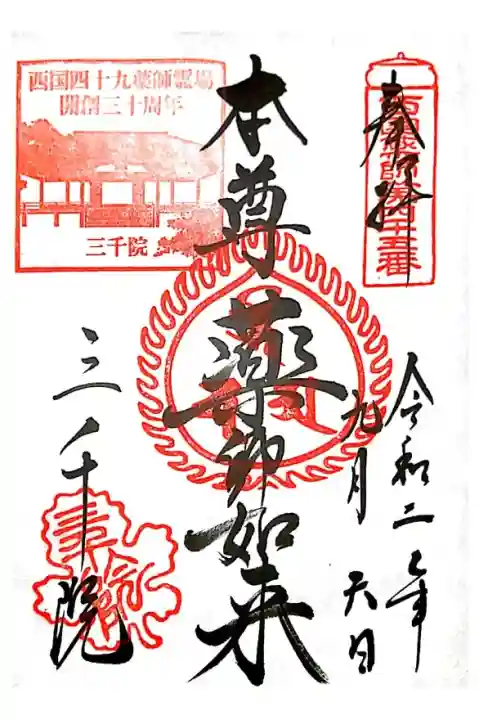 奉拝
西国薬師第四十五番
令和二年
九月六日
本尊
薬師如来
西国四十九薬師霊場
開創三十周年
三千院
三千院